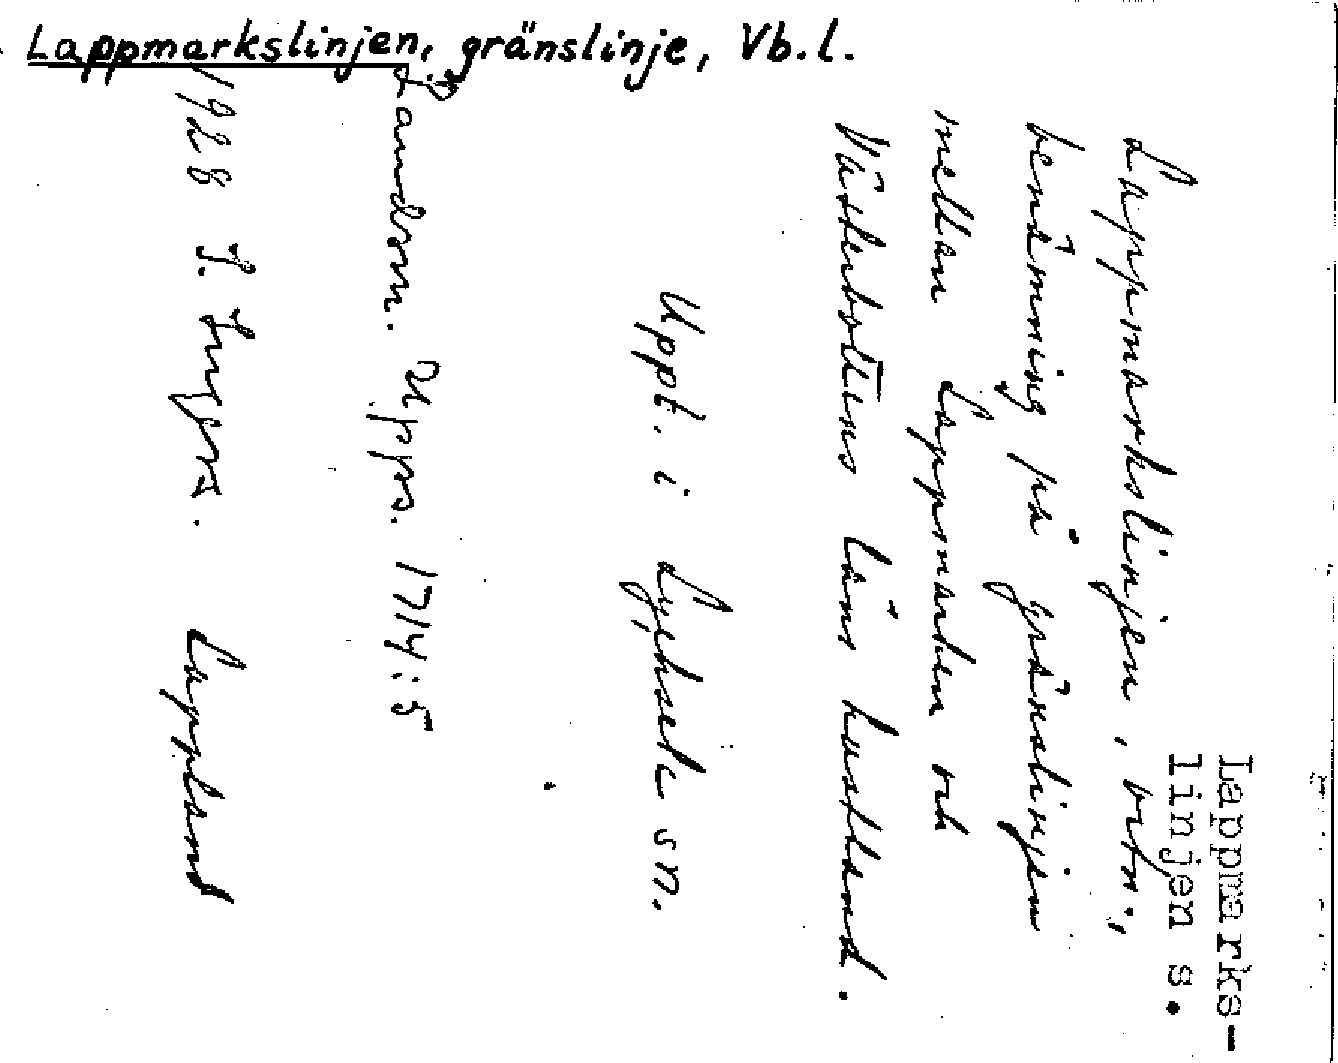 Lappmarkslinjen, gränslinje, Vb.l.
Lappmarks-
linjen s.
Lappmarkslinjen, ortn.,
benämning på gränslinjen
mellan Lappmarken och
Västerbottens läns kustland.
Uppt. i Lycksele sn.
Landsm. Upps. 1714:5
1928 J. Lappland